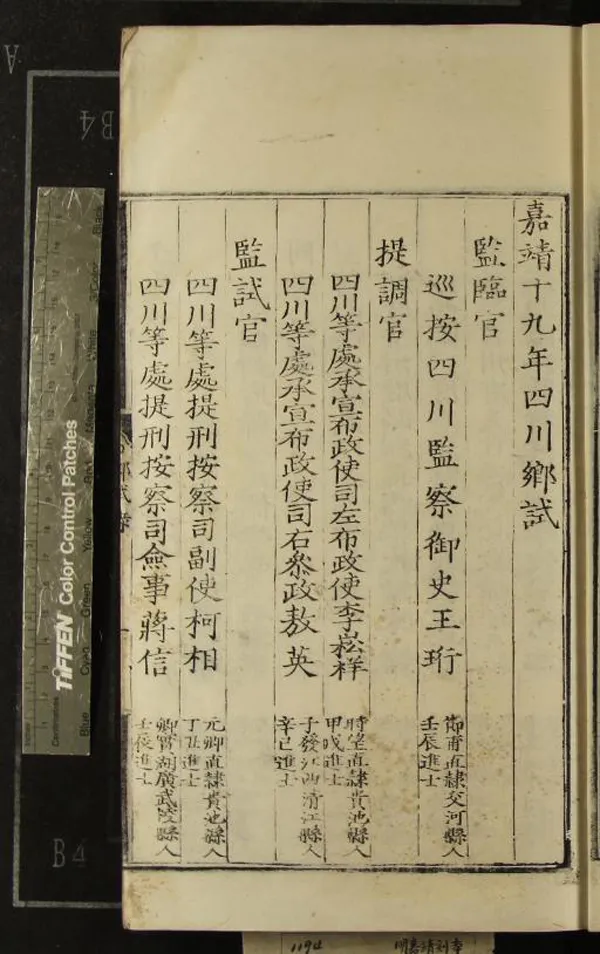 嘉靖十九年四川鄉試
監臨官
巡按四川監察御史王珩
節甫直隸交河縣人
壬辰進士
提調官
四川等處承宣布政使司左布政使李崧祥
時望直隸貴池縣人
甲戌進士
四川等處承宣布政使司右叅政敖英
子發江西清江縣人
辛巳進士
監試官
四川等處提刑按察司副使柯相
元卿直隸貴池縣人
丁丑進士
四川等處提刑按察司僉事蔣信
卿實湖廣武陵縣人
壬辰進士
TIFFEN Color Control Patches
Blue
Green
Yellow
Red
Magenta
Black
Centimetres
A
B4
B4
1194
明嘉靖刻本